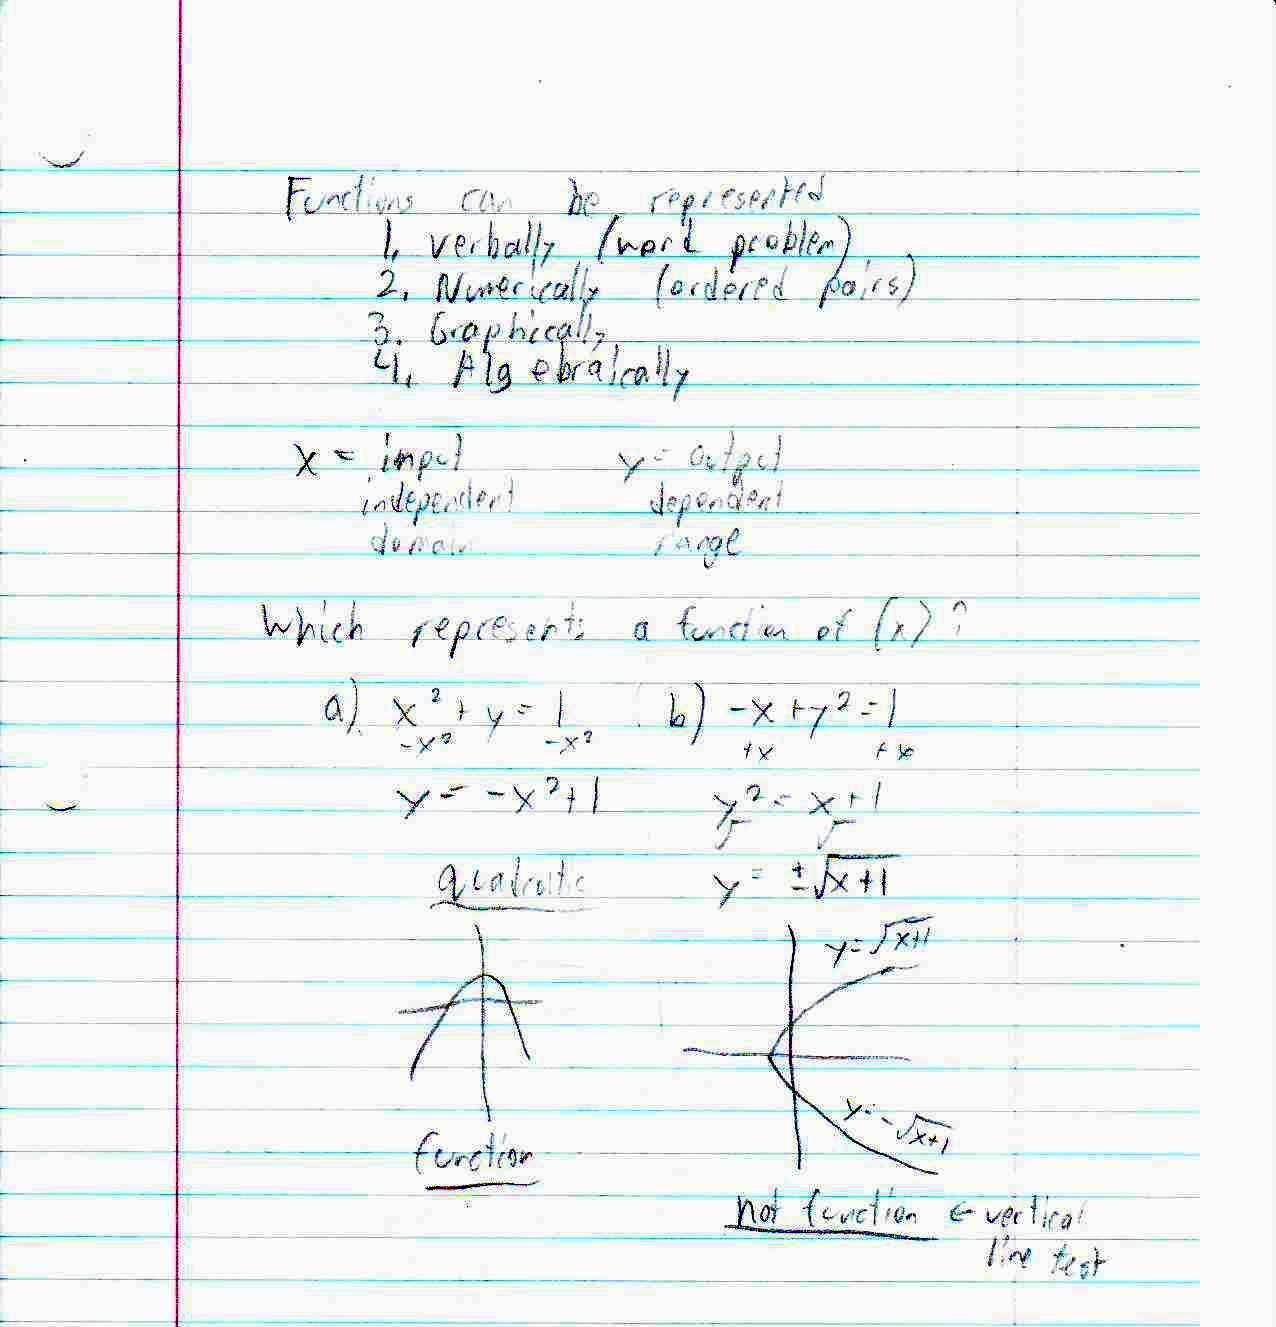 Functions can be represented
1. verbally (word problem)
2. Numerically (ordered pairs)
3. Graphically
4. Algebraically
x = input y = output
independent dependent
domain range
Which represents a function of (x)?
a) x² + y = 1 b) -x + y² = 1
-x² -x² +x +x
y = -x² + 1 y² = x + 1
quadratic y = ±√x+1
y = √x+1
y = -√x+1
function
not function ← vertical
line test